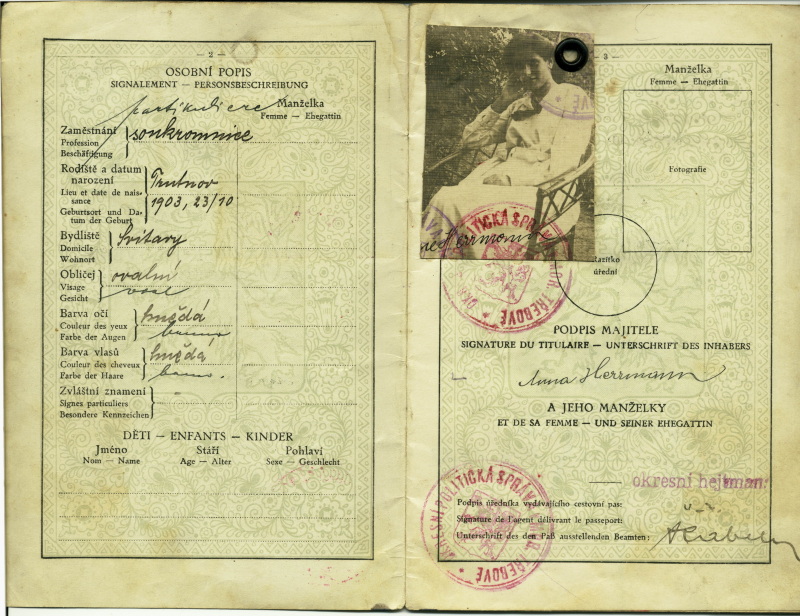 — 2 —
OSOBNÍ POPIS
SIGNALEMENT — PERSONSBESCHREIBUNG
Manželka
Femme — Ehegattin
Zaměstnání
Profession
Beschäftigung
soukromnice
Rodiště a datum
narození
Lieu et date de nais-
sance
Geburtsort und Da-
tum der Geburt
Trutnov
1903, 23/10
Bydliště
Domicile
Wohnort
Svitavy
Obličej
Visage
Gesicht
ovalní
Barva očí
Couleur des yeux
Farbe der Augen
hnědá
Barva vlasů
Couleur des cheveux
Farbe der Haare
hnědá
Zvláštní znamení
Signes particuliers
Besondere Kennzeichen
DĚTI — ENFANTS — KINDER
Jméno
Nom — Name
Stáří
Age — Alter
Pohlaví
Sexe — Geschlecht
3 —
Manželka
Femme — Ehegattin
Fotografie
Herrmann
úřední
PODPIS MAJITELE
SIGNATURE DU TITULAIRE — UNTERSCHRIFT DES INHABERS
Anna Herrmann
A JEHO MANŽELKY
ET DE SA FEMME — UND SEINER EHEGATTIN
okresní hejtman:
Podpis úředníka vydávajícího cestovní pas:
Signature de l'agent délivrant le passeport:
Unterschrift des den Paß ausstellenden Beamten: